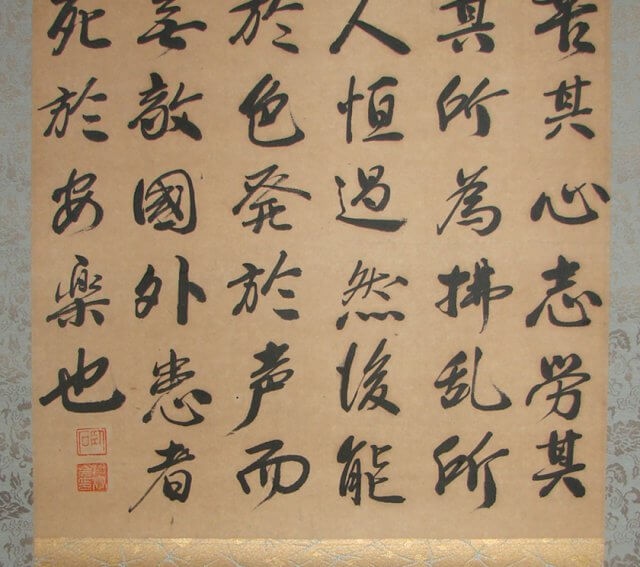 苦其心志労其
其所為拂乱所
人恒過然後能
於色発於声而
無敵國外患者
死於安楽也